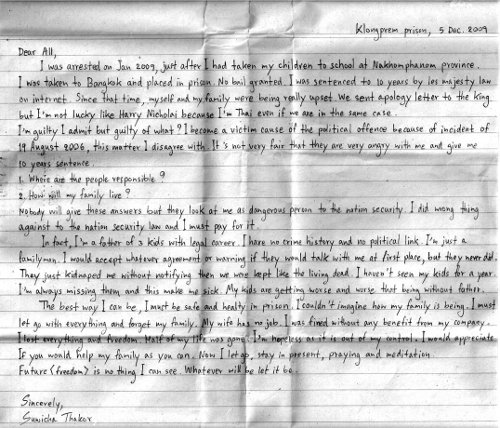 Klongprem prison, 5 Dec. 2009
Dear All,
I was arrested on Jan 2009, just after I had taken my children to school at Nakhomphanom province.
I was taken to Bangkok and placed in prison. No bail granted. I was sentenced to 10 years by les majesty law
on internet. Since that time, myself and my family were being really upset. We sent apology letter to the king
but I'm not lucky like Harry Nicholai because I'm Thai even if we are in the same case.
I'm guilty I admit but guilty of what? I become a victim cause of the political offence because of incident of
19 August 2006, this matter I disagree with. It's not very fair that they are very angry with me and give me
10 years sentence.
1. Where are the people responsible?
2. How will my family live?
Nobody will give these answers but they look at me as dangerous person to the nation security. I did wrong thing
against to the nation security law and I must pay for it.
In fact, I'm a father of 3 kids with legal career. I have no crime history and no political link. I'm just a
familyman. I would accept whatever agreement or warning if they would talk with me at first place, but they never did.
They just kidnaped me without notifying then we were kept like the living dead. I haven't seen my kids for a year.
I'm always missing them and this make me sick. My kids are getting worse and worse that being without father.
The best way I can be, I must be safe and healty in prison. I couldn't imagine how my family is being. I must
let go with everything and forget my family. My wife has no job. I was fired without any benefit from my company.
I lost everything and freedom. Half of my life was gone. I'm hopeless as it is out of my control. I would appreciate
If you would help my family as you can. Now I let go, stay in present, praying and meditation.
Future <freedom> is no thing I can see. Whatever will be let it be.
Sincerely,
Suwicha Thakor